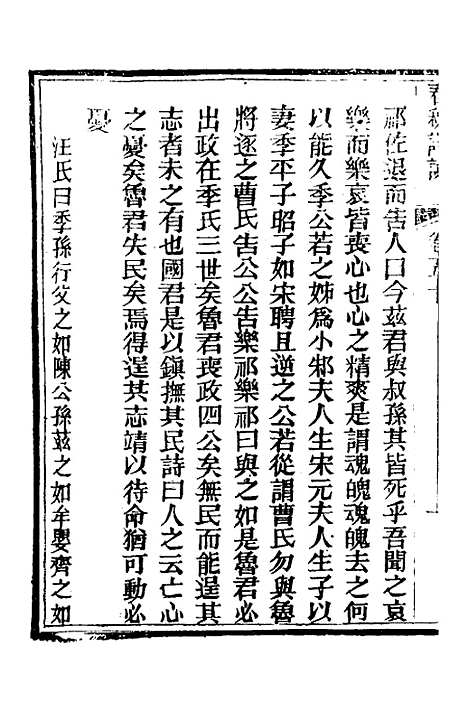 祁佐退而告人曰今茲君與叔孫其皆死乎吾聞之哀
樂而樂哀皆喪心也心之精爽是謂魂魄魂魄去之何
以能久季公若之姊爲小邾夫人生宋元夫人生子以
妻季平子昭子如宋聘且逆之公若從謂曹氏勿與魯
將逐之曹氏告公公告樂祁樂祁曰與之如是魯君必
出政在季氏三世矣魯君喪政四公矣無民而能逞其
志者未之有也國君是以鎮撫其民詩曰人之云亡心
之憂矣魯君失民矣焉得逞其志靖以待命猶可動必
憂
汪氏曰季孫行父之如陳公孫茲之如牟嬰齊之如